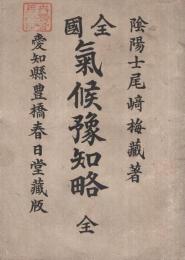 陰陽士尾﨑梅藏著
全國
氣候豫知略
全
愛知縣豊橋春日堂藏版